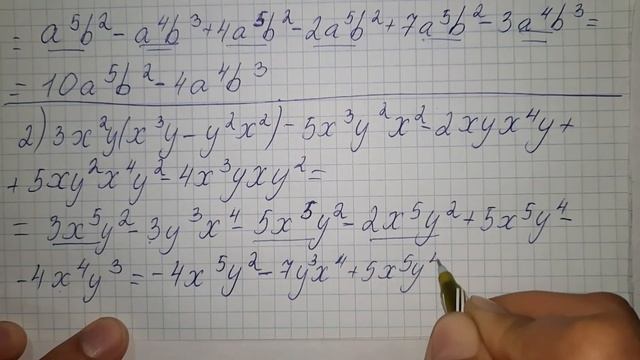 = a⁵b² - a⁴b³ + 4a⁵b² - 2a⁵b² + 7a⁵b² - 3a⁴b³ =
= 10a⁵b² - 4a⁴b³
2) 3x²y(x³y - y²x²) - 5x³y²x² - 2xyx⁴y +
+ 5xy²x⁴y² - 4x³yxy² =
= 3x⁵y² - 3y³x⁴ - 5x⁵y² - 2x⁵y² + 5x⁵y⁴ -
- 4x⁴y³ = -4x⁵y² - 7y³x⁴ + 5x⁵y⁴